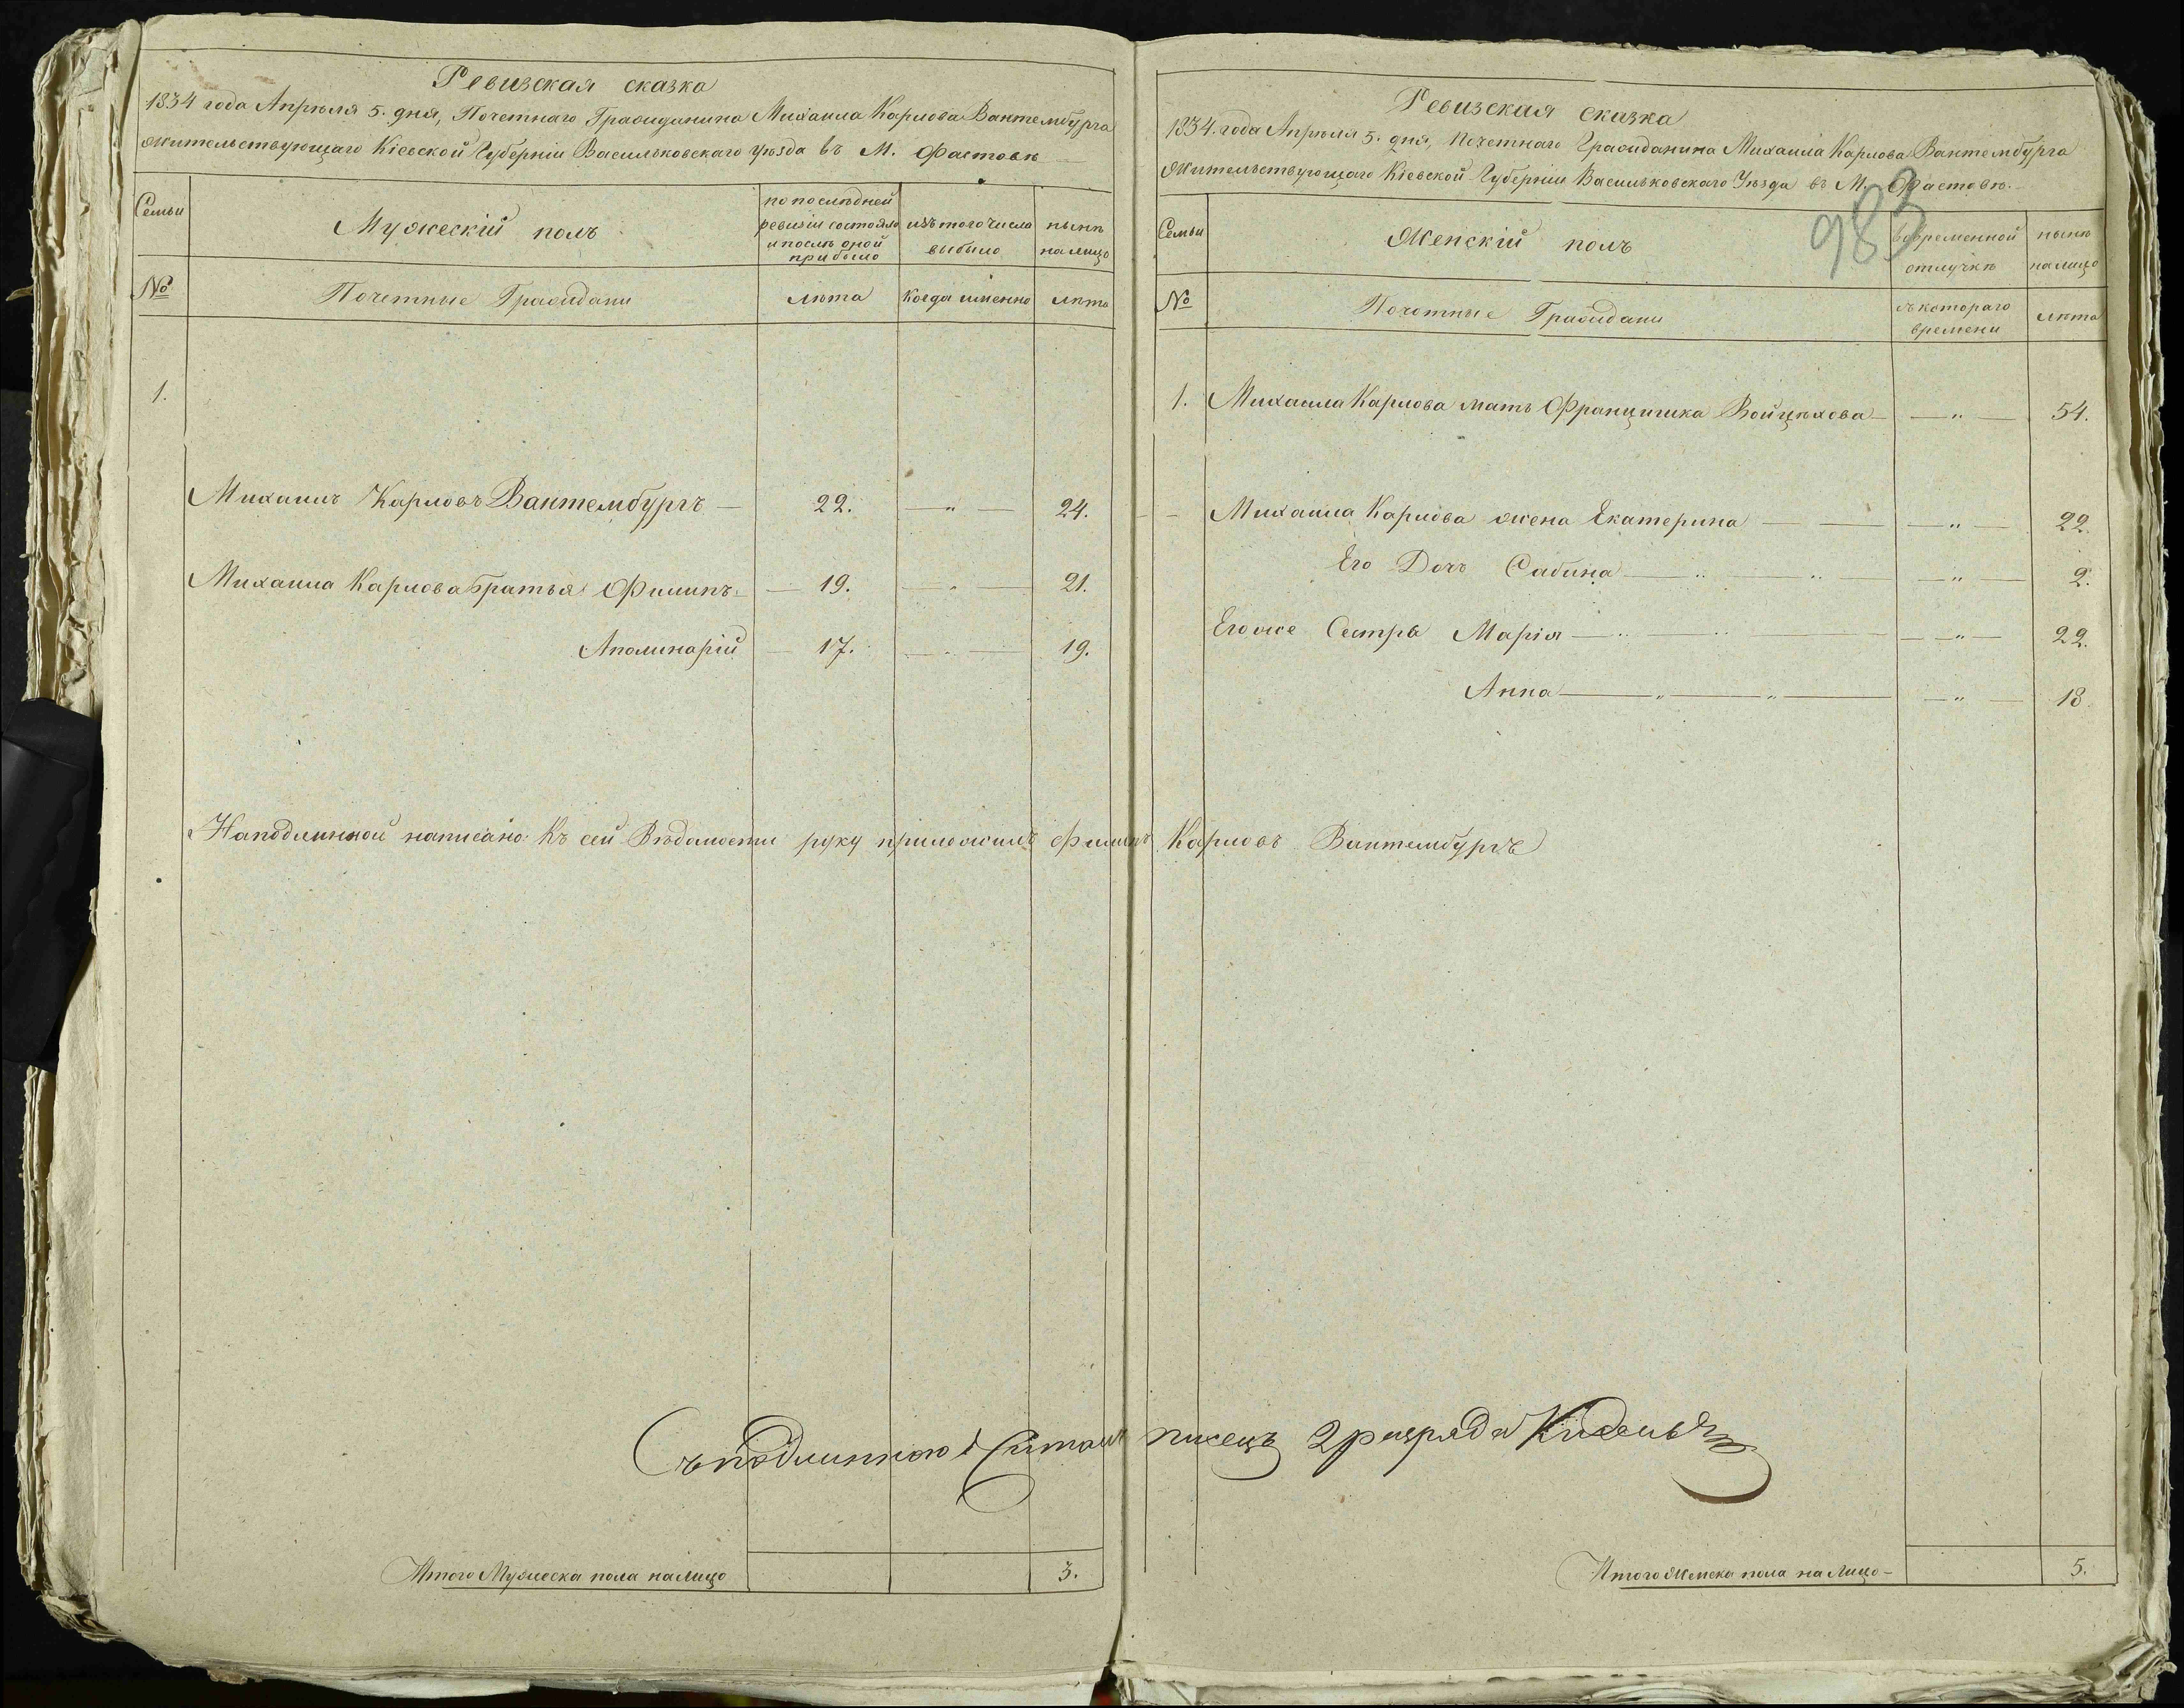 Ревизская сказка
1834 года Апрѣля 5. дня, Почетнаго Гражданина Михаила Карлова Вантембурга
жительствующаго Кіевской Губерніи Васильковскаго уѣзда въ М. Фастовѣ
Семьи
Мужескій полъ
по послѣдней
ревизіи состояло
и послѣ оной
прибыло
изъ того числа
выбыло
нынѣ
на лицо
№
Почетные Граждани
лѣта
Когда именно
лѣта
1.
Михаилъ Карловъ Вантембургъ — 22. — „ — 24.
Михаила Карлова братья Филипъ — 19. — „ — 21.
Аполинарій — 17. — „ — 19.
Наподлинной написано: Къ сей Вѣдомости руку приложилъ Филипъ Карловъ Вантембургъ
Съ подлинною читалъ писецъ 2 разряда
Итого Мужеска пола на лицо 3.
Ревизская сказка
1834. года Апрѣля 5. дня, почетнаго Гражданина Михаила Карлова Вантембурга
Жительствующаго Кіевской Губерніи Васильковскаго Уѣзда въ М. Фастовѣ.
983
Семьи
Женскій полъ
во временной
отлучкѣ
нынѣ
на лицо
№
Почотные Граждани
съ котораго
времени
лѣта
1. Михаила Карлова мать Францишка Войцѣхова — „ — 54.
Михаила Карлова жена Екатерина — — — „ — 22.
Его Дочь Сабина — „ — „ — — „ — 2.
Его же Сестры Марія — „ — „ — — „ — 22.
Анна — „ — „ — — „ — 18.
Итого Женска пола на лицо — 5.